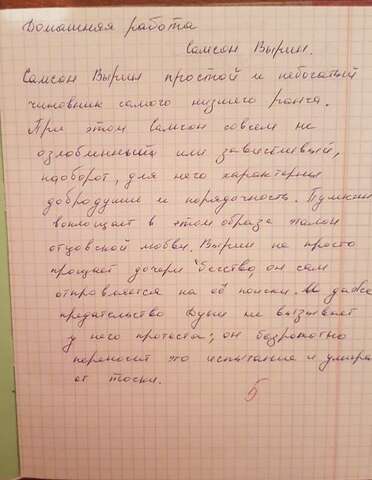 Домашняя работа
Самсон Вырин.
Самсон Вырин простой и небогатый
чиновник самого низшего ранга.
При этом Самсон совсем не
озлобленный или завистливый,
наоборот, для него характерны
добродушие и порядочность. Пушкин
воплощает в этом образе эталон
отцовской любви. Вырин не просто
прощает дочери бегство, он сам
отправляется на её поиски. И даже
предательство Дуни не вызывает
у него протеста; он безропотно
переносит это испытание и умирает
от тоски.
5